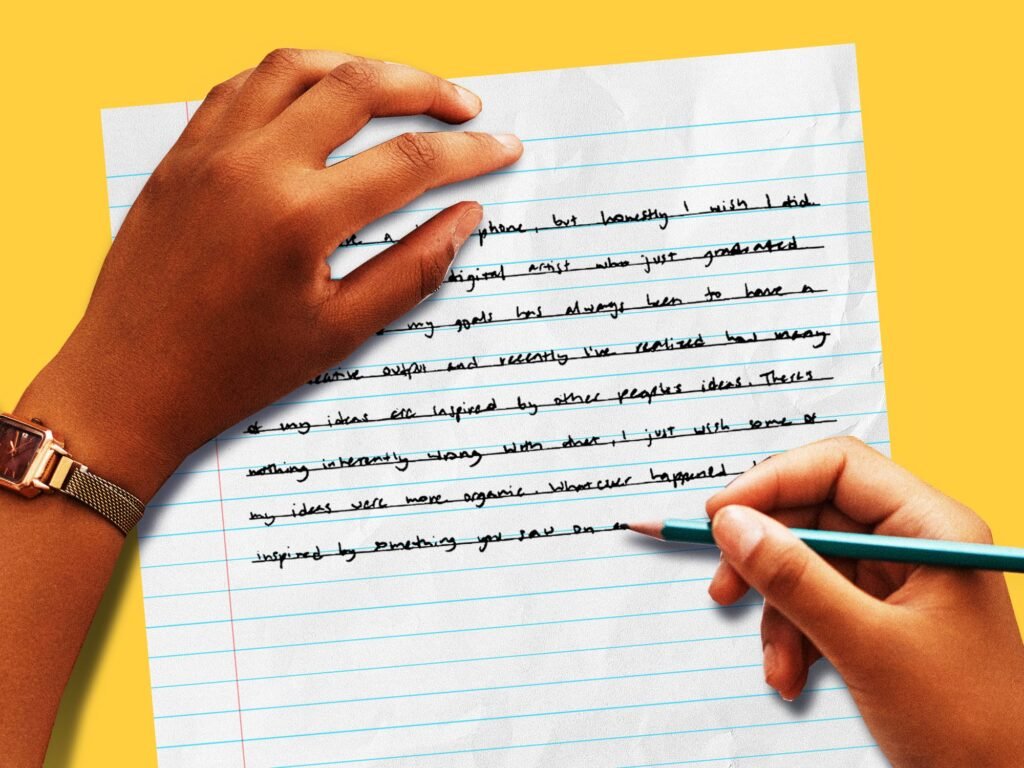 a phone, but honestly I wish I did.
digital artist who just graduated
my goals has always been to have a
output and recently I've realized how many
of my ideas are inspired by other people's ideas. There's
nothing inherently wrong with that, I just wish some of
my ideas were more organic. Whatever happened
inspired by something you saw on